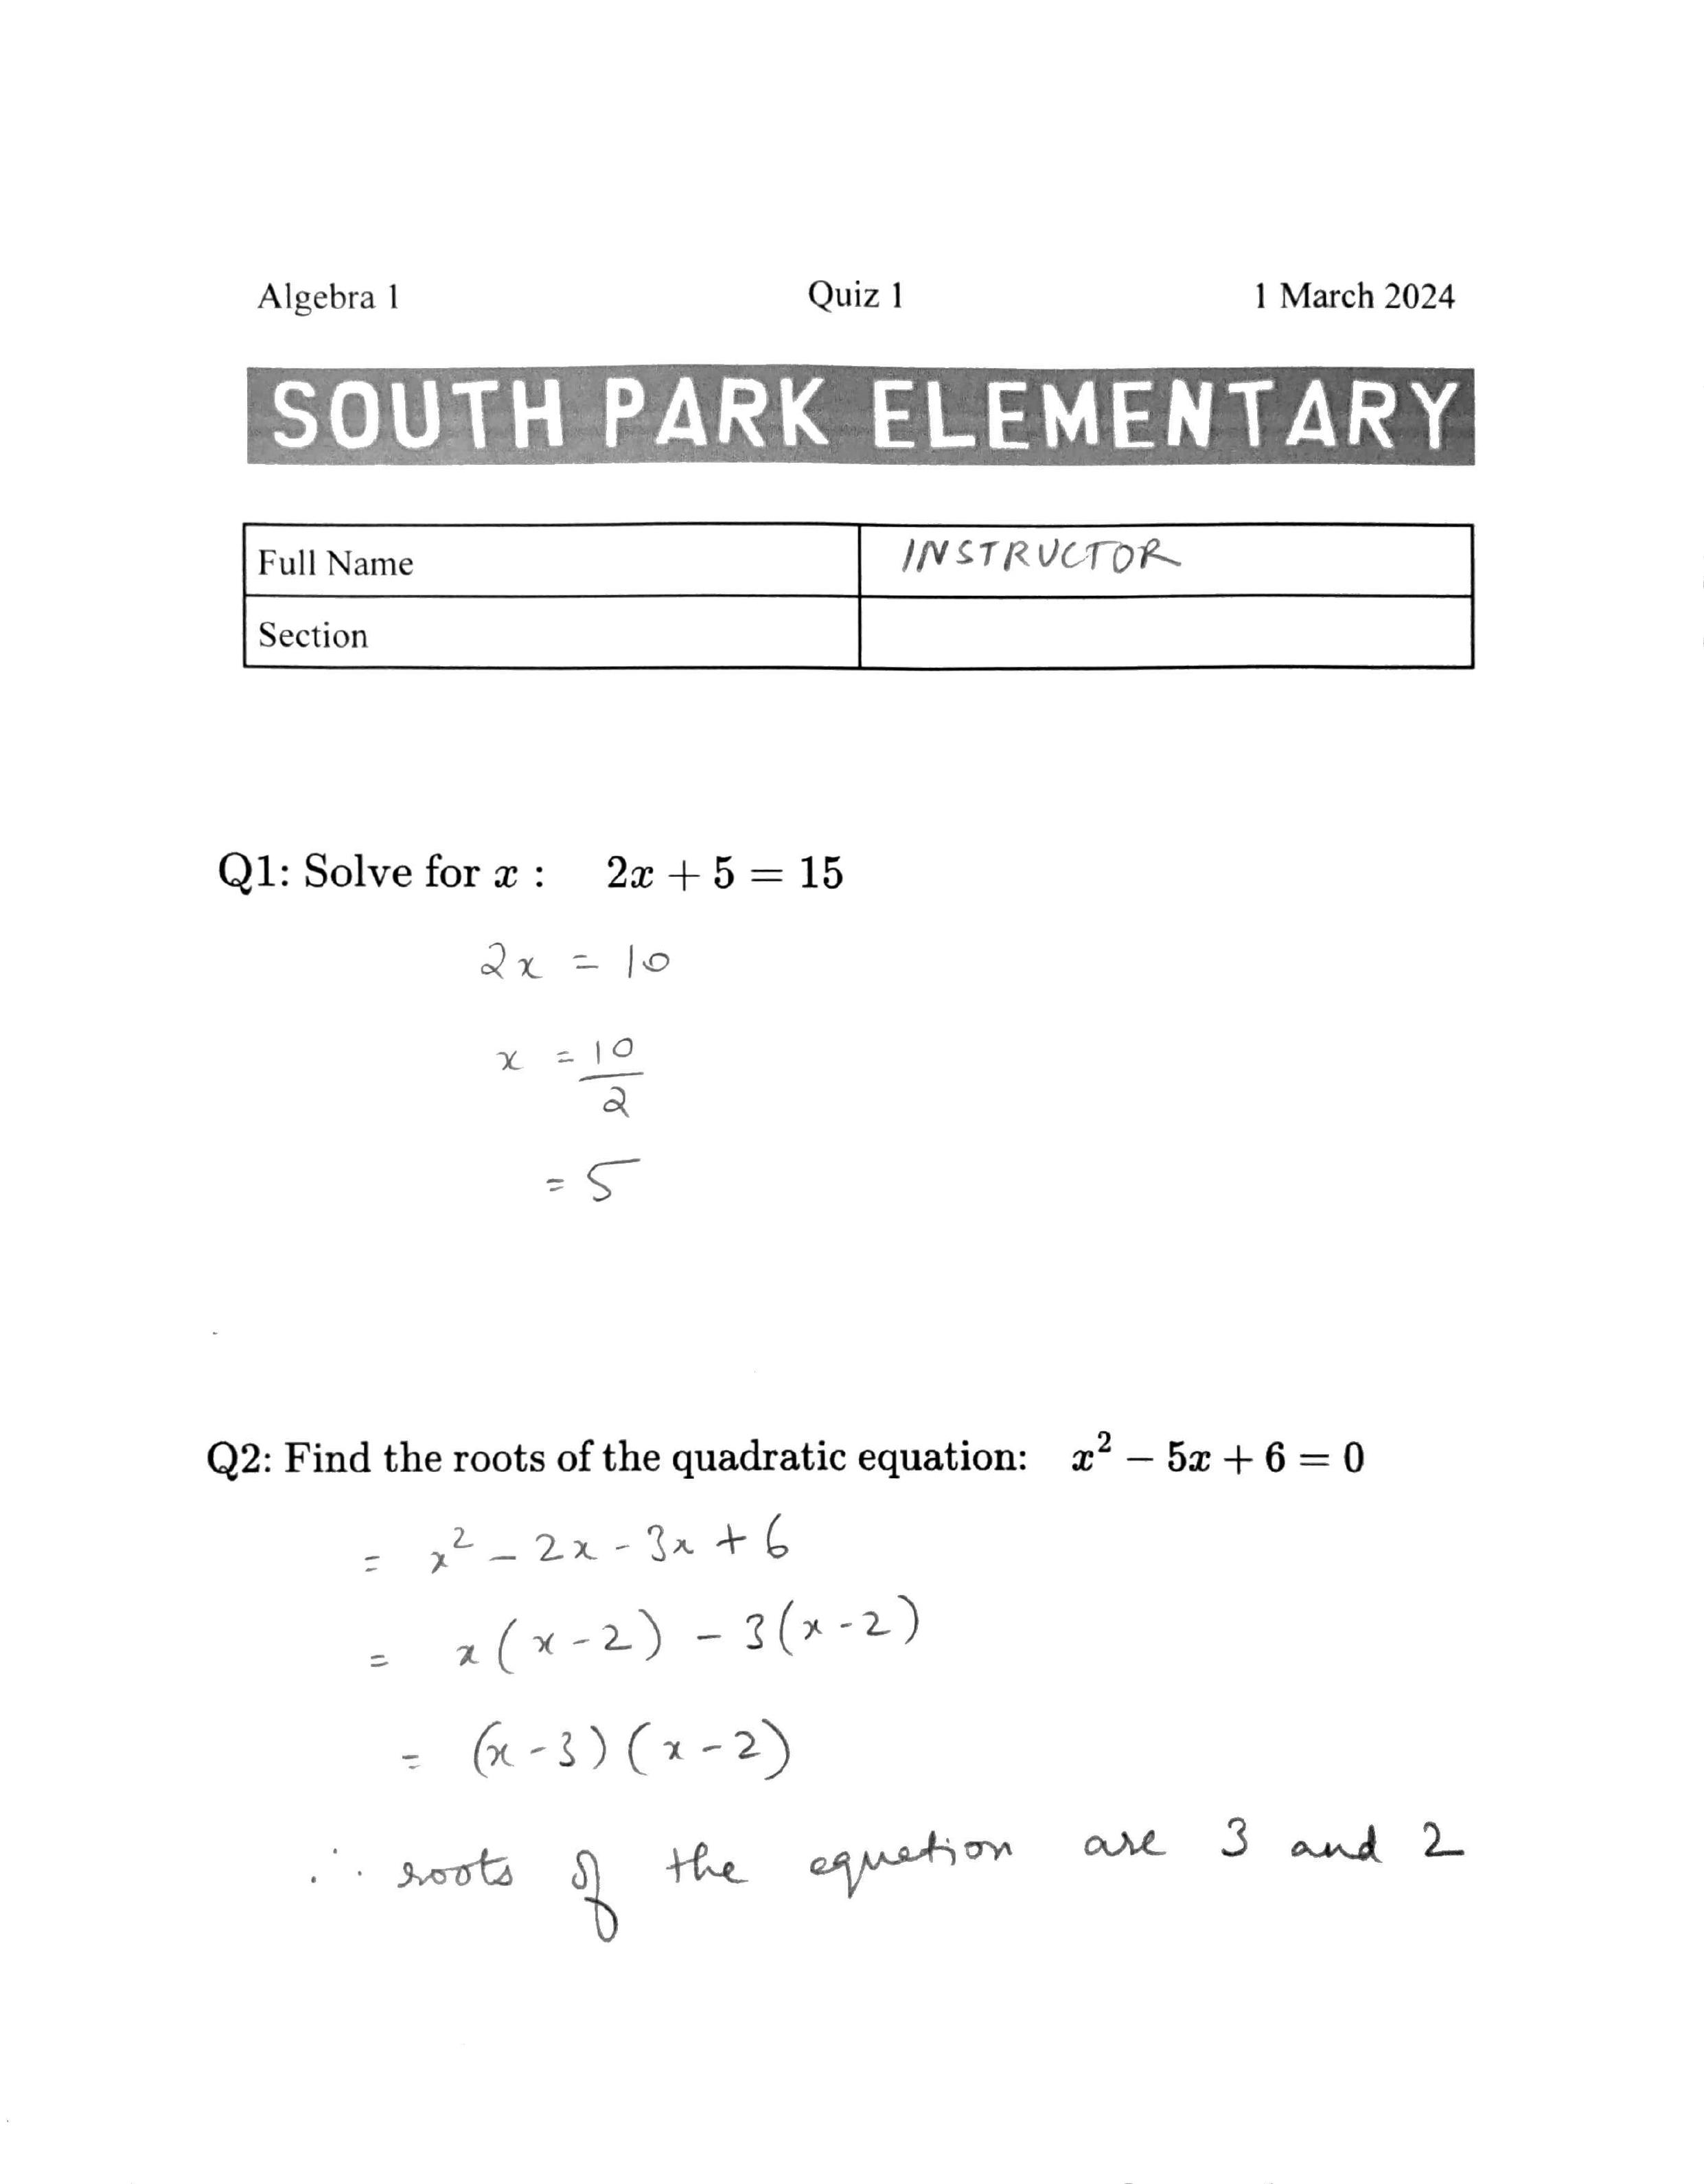 Algebra 1 Quiz 1 1 March 2024
SOUTH PARK ELEMENTARY
Full Name INSTRUCTOR
Section
Q1: Solve for x : 2x + 5 = 15
2x = 10
x = 10/2
= 5
Q2: Find the roots of the quadratic equation: x² − 5x + 6 = 0
= x² - 2x - 3x + 6
= x(x-2) - 3(x-2)
= (x-3)(x-2)
∴ roots of the equation are 3 and 2